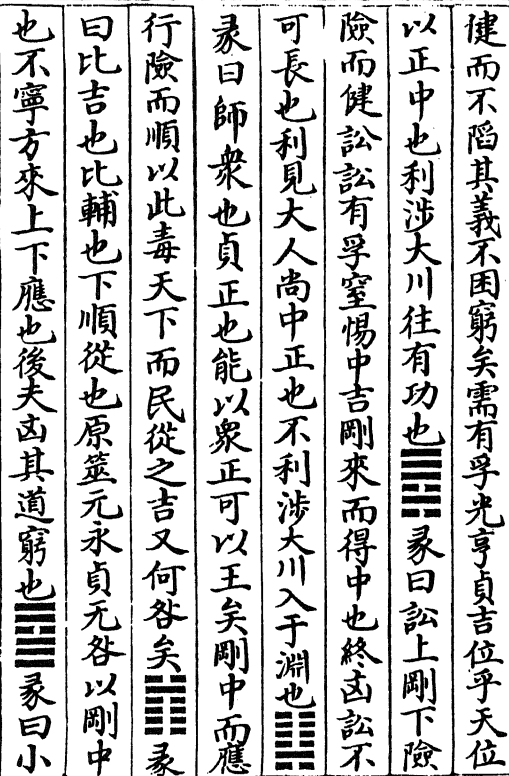 健而不陷其義不困窮矣需有孚光亨貞吉位乎天位
以正中也利涉大川往有功也䷅彖曰訟上剛下險
險而健訟訟有孚窒惕中吉剛來而得中也終凶訟不
可長也利見大人尚中正也不利涉大川入于淵也䷆
彖曰師衆也貞正也能以衆正可以王矣剛中而應
行險而順以此毒天下而民從之吉又何咎矣䷇彖
曰比吉也比輔也下順從也原筮元永貞无咎以剛中
也不寧方來上下應也後夫凶其道窮也䷈彖曰小